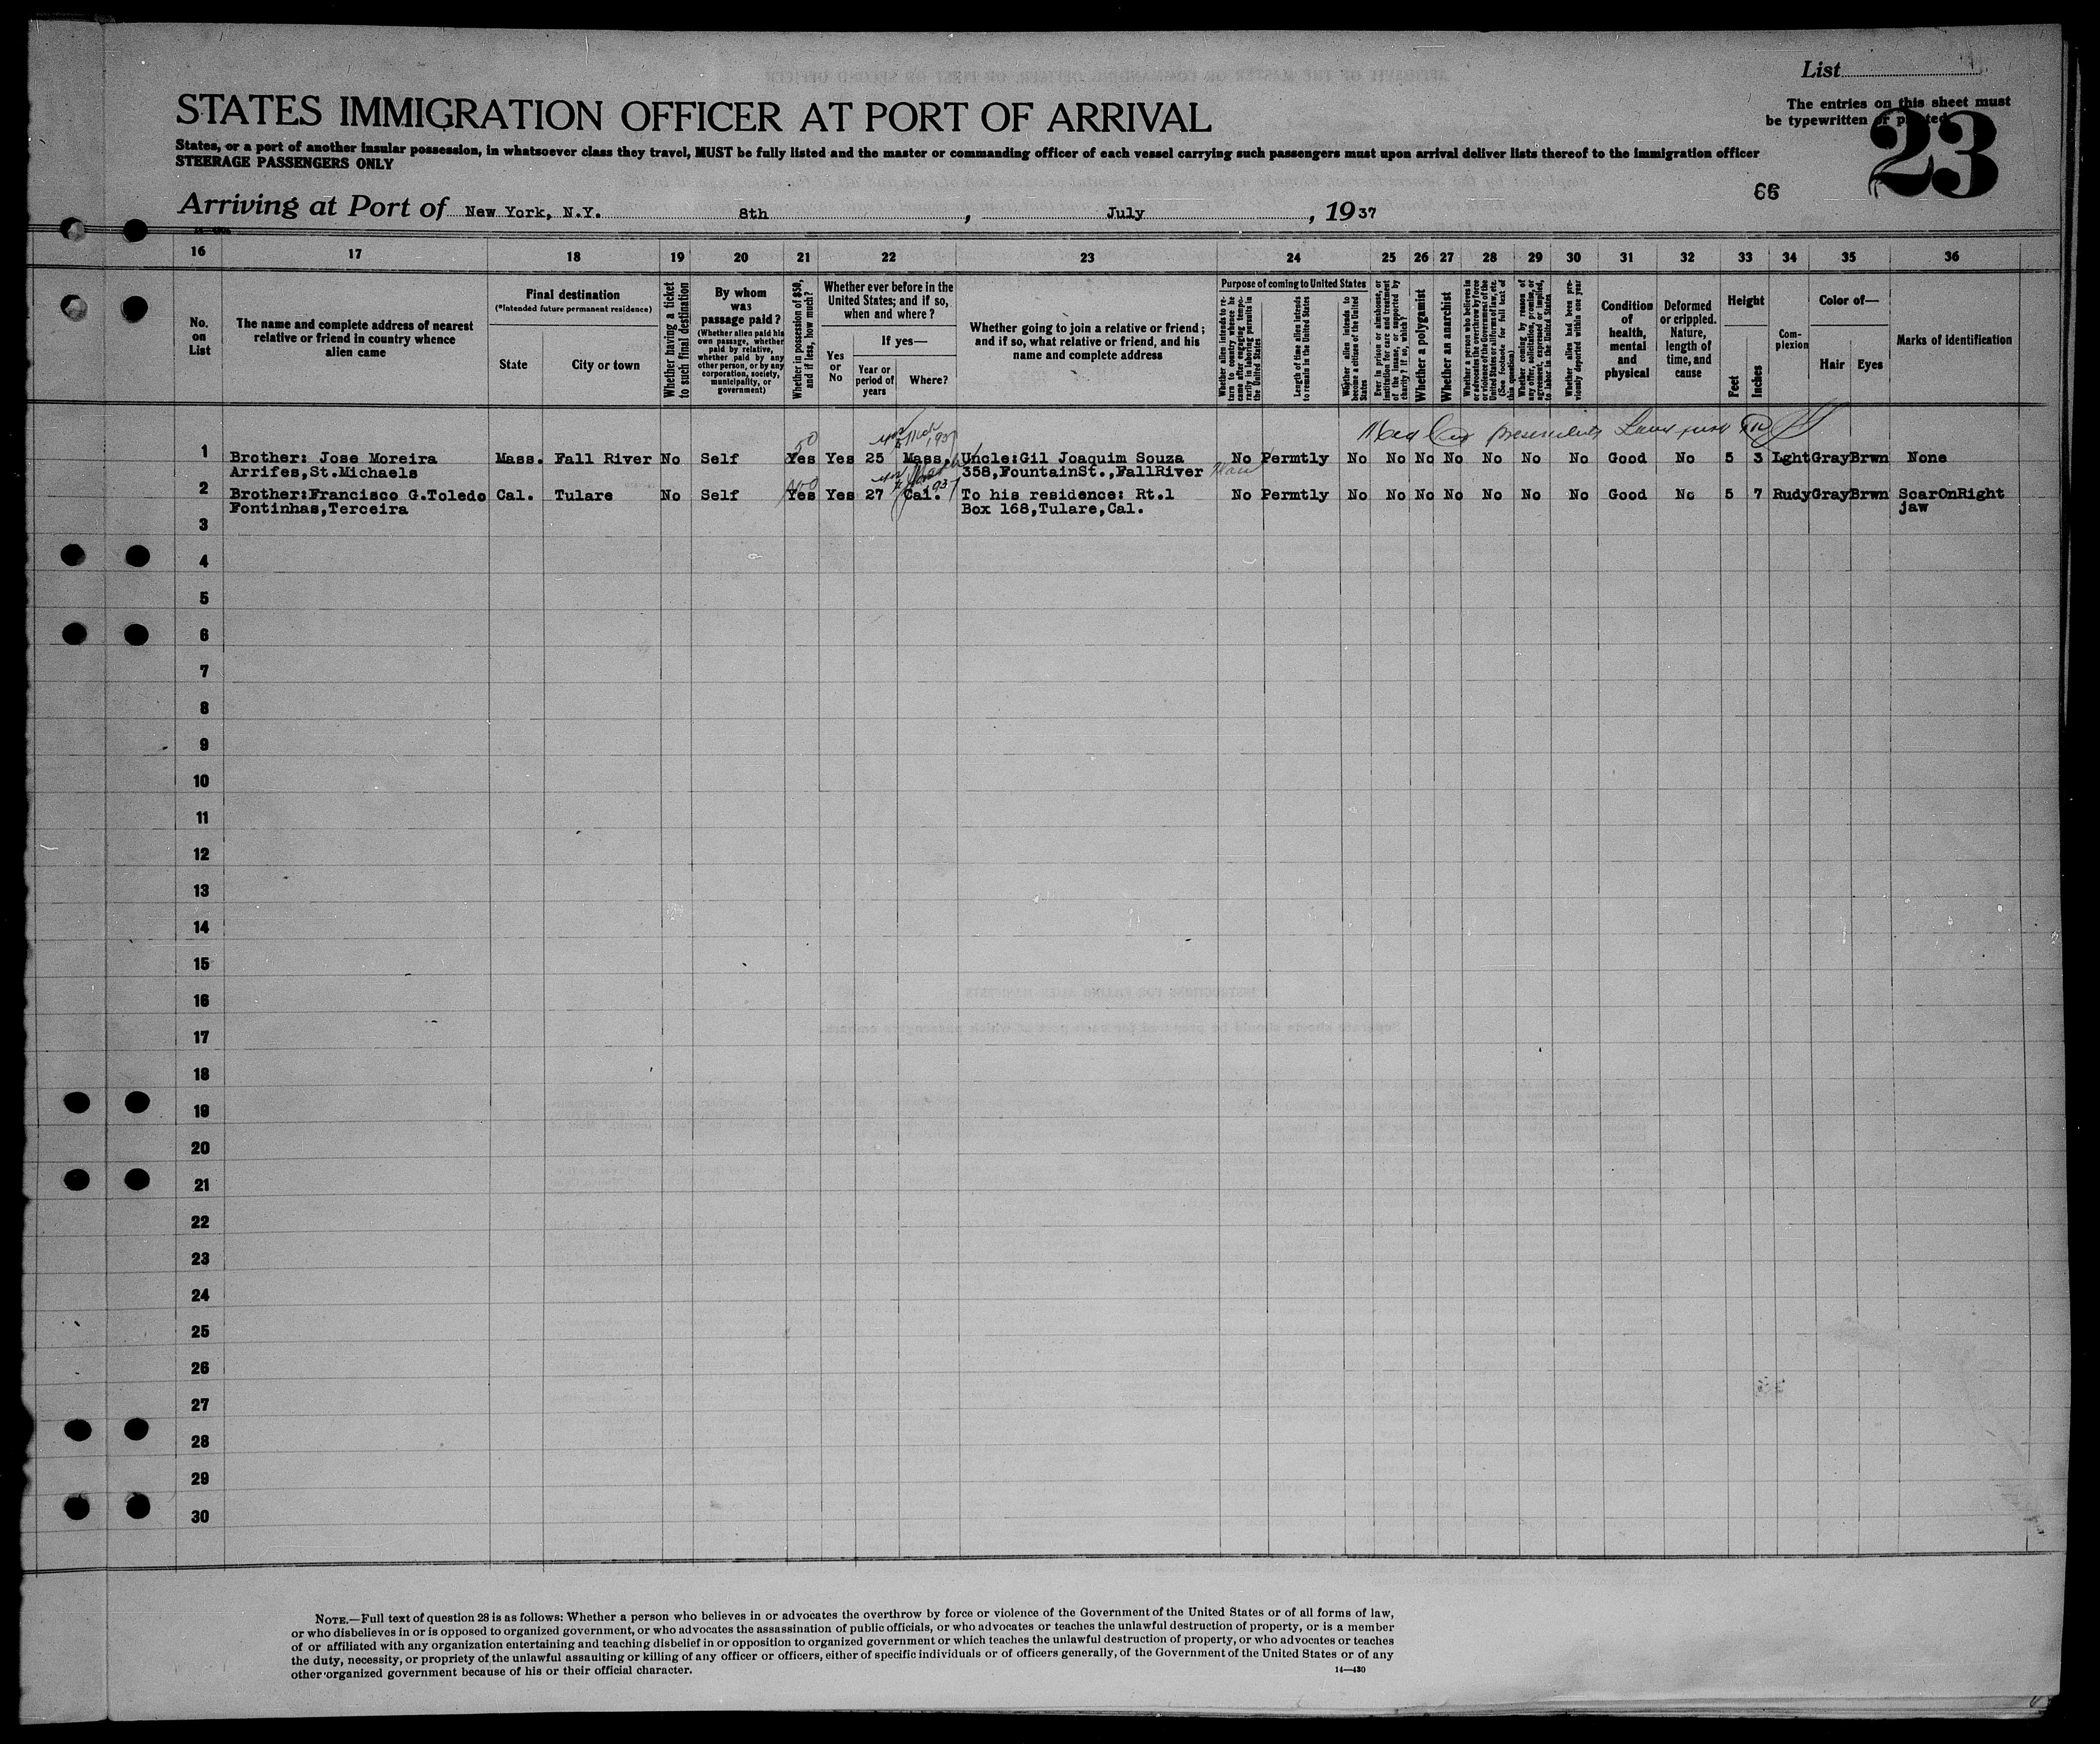 List
STATES IMMIGRATION OFFICER AT PORT OF ARRIVAL
The entries on this sheet must
be typewritten or printed
23
States, or a port of another insular possession, in whatsoever class they travel, MUST be fully listed and the master or commanding officer of each vessel carrying such passengers must upon arrival deliver lists thereof to the immigration officer
STEERAGE PASSENGERS ONLY
66
Arriving at Port of New York, N.Y. 8th, July, 1937
16 17 18 19 20 21 22 23 24 25 26 27 28 29 30 31 32 33 34 35 36
No. on List
The name and complete address of nearest relative or friend in country whence alien came
Final destination
(*Intended future permanent residence)
State
City or town
Whether having a ticket to such final destination
By whom was passage paid?
(Whether alien paid his own passage, whether paid by relative, whether paid by any other person, or by any corporation, society, municipality, or government)
Whether in possession of $50, and if less, how much?
Whether ever before in the United States; and if so, when and where?
Yes or No
If yes—
Year or period of years
Where?
Whether going to join a relative or friend; and if so, what relative or friend, and his name and complete address
Purpose of coming to United States
Whether alien intends to return to country whence he came after engaging temporarily in laboring pursuits in the United States
Length of time alien intends to remain in the United States
Whether alien intends to become a citizen of the United States
Ever in prison or almshouse, or institution for care and treatment of the insane, or supported by charity? If so, which?
Whether a polygamist
Whether an anarchist
Whether a person who believes in or advocates the overthrow by force or violence of the Government of the United States or all forms of law, etc. (See footnote for full text of this question)
Whether coming by reason of any offer, solicitation, promise, or agreement, expressed or implied, to labor in the United States
Whether alien had been previously deported within one year
Condition of health, mental and physical
Deformed or crippled. Nature, length of time, and cause
Height
Feet
Inches
Complexion
Color of—
Hair
Eyes
Marks of identification
50
1 Brother: Jose Moreira Mass. Fall River No Self Yes Yes 25 Mass. Uncle:Gil Joaquim Souza No Permtly No No No No No No No Good No 5 3 Lght Gray Brwn None
Arrifes,St.Michaels 358,FountainSt.,FallRiver
2 Brother:Francisco G.Toledo Cal. Tulare No Self Yes Yes 27 Cal. To his residence: Rt.1 No Permtly No No No No No No No Good No 5 7 Rudy Gray Brwn ScarOnRight
Fontinhas,Terceira Box 168,Tulare,Cal. jaw
3
4
5
6
7
8
9
10
11
12
13
14
15
16
17
18
19
20
21
22
23
24
25
26
27
28
29
30
NOTE.—Full text of question 28 is as follows: Whether a person who believes in or advocates the overthrow by force or violence of the Government of the United States or of all forms of law,
or who disbelieves in or is opposed to organized government, or who advocates the assassination of public officials, or who advocates or teaches the unlawful destruction of property, or is a member
of or affiliated with any organization entertaining and teaching disbelief in or opposition to organized government or which teaches the unlawful destruction of property, or who advocates or teaches
the duty, necessity, or propriety of the unlawful assaulting or killing of any officer or officers, either of specific individuals or of officers generally, of the Government of the United States or of any
other organized government because of his or their official character.
14—430